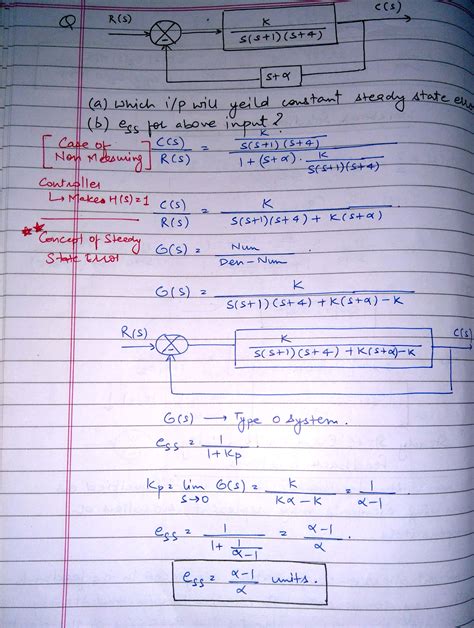 Q R(s) K C(s)
s(s+1)(s+4)
s+α
(a) which i/p will yeild constant steady state erro
(b) ess for above input?
[Case of Non Measuring] C(s)/R(s) = K/s(s+1)(s+4) / 1 + (s+α) . K/s(s+1)(s+4)
Controller
↳ Makes H(s)=1
C(s)/R(s) = K / s(s+1)(s+4) + K(s+α)
** Concept of Steady State Error
G(s) = Num / Den - Num
G(s) = K / s(s+1)(s+4) + K(s+α) - K
R(s) K / s(s+1)(s+4) + K(s+α)-K C(s)
G(s) → Type 0 system.
ess = 1 / 1+Kp
Kp = lim s→0 G(s) = K / Kα - K = 1 / α-1
ess = 1 / 1 + 1/α-1 = α-1 / α
ess = α-1 / α units.